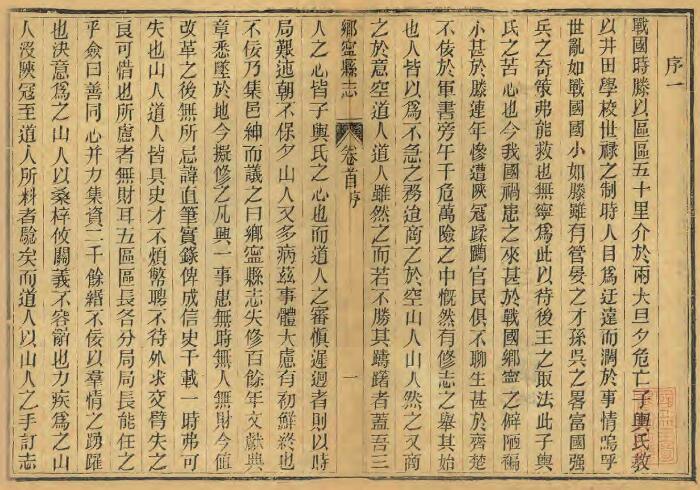 序一
戰國時滕以區區五十里介於兩大旦夕危亡子輿氏敎
以井田學校世祿之制時人目爲迂遠而濶於事情嗚呼
世亂如戰國國小如滕雖有管晏之才孫吳之畧富國强
兵之奇策弗能救也無寧爲此以待後王之取法此子輿
氏之苦心也今我國禍患之來甚於戰國鄉寧之僻陋褊
小甚於滕連年慘遭陜冦蹂躪官民俱不聊生甚於齊楚
不佞於軍書旁午千危萬險之中慨然有修志之舉其始
也人皆以爲不急之務迨商之於空山人山人然之又商
之於意空道人道人雖然之而若不勝其躊躇者蓋吾三
鄉寧縣志
卷首序
一
人之心皆子輿氏之心也而道人之審愼遲迴者則以時
局艱迍朝不保夕山人又多病茲事體大慮有初鮮終也
不佞乃集邑紳而議之曰鄉寧縣志失修百餘年文獻典
章悉墜於地今擬修之凡興一事患無時無人無財今値
改革之後無所忌諱直筆實錄俾成信史千載一時弗可
失也山人道人皆具史才不煩幣聘不待外求交臂失之
良可惜也所慮者無財耳五區區長各分局局長能任之
乎僉曰善同心并力集資二千餘緡不佞以羣情之踴躍
也決意爲之山人以桑梓攸關義不容辭也力疾爲之山
人沒陜冦至道人所料者騐矣而道人以山人之手訂志